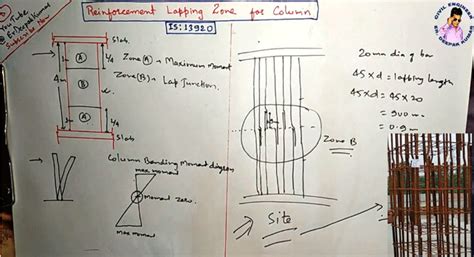 Reinforcement Lapping Zone for Column
IS: 13920
You Tube
Er Deepak Kumar
Subscribe Now
CIVIL ENGINEER
ER. DEEPAK KUMAR
Slab
A
B
A
4m
L/4
L/4
Slab
Zone (A) → Maximum Moment
Zone (B) → Lap Junction.
Column Banding Moment diagram
max moment
Moment zero.
Max moment
Zone B
Site
20mm dia of bar
45 x d = lapping length
45 x d = 45 x 20
= 900 mm
= 0.9 m